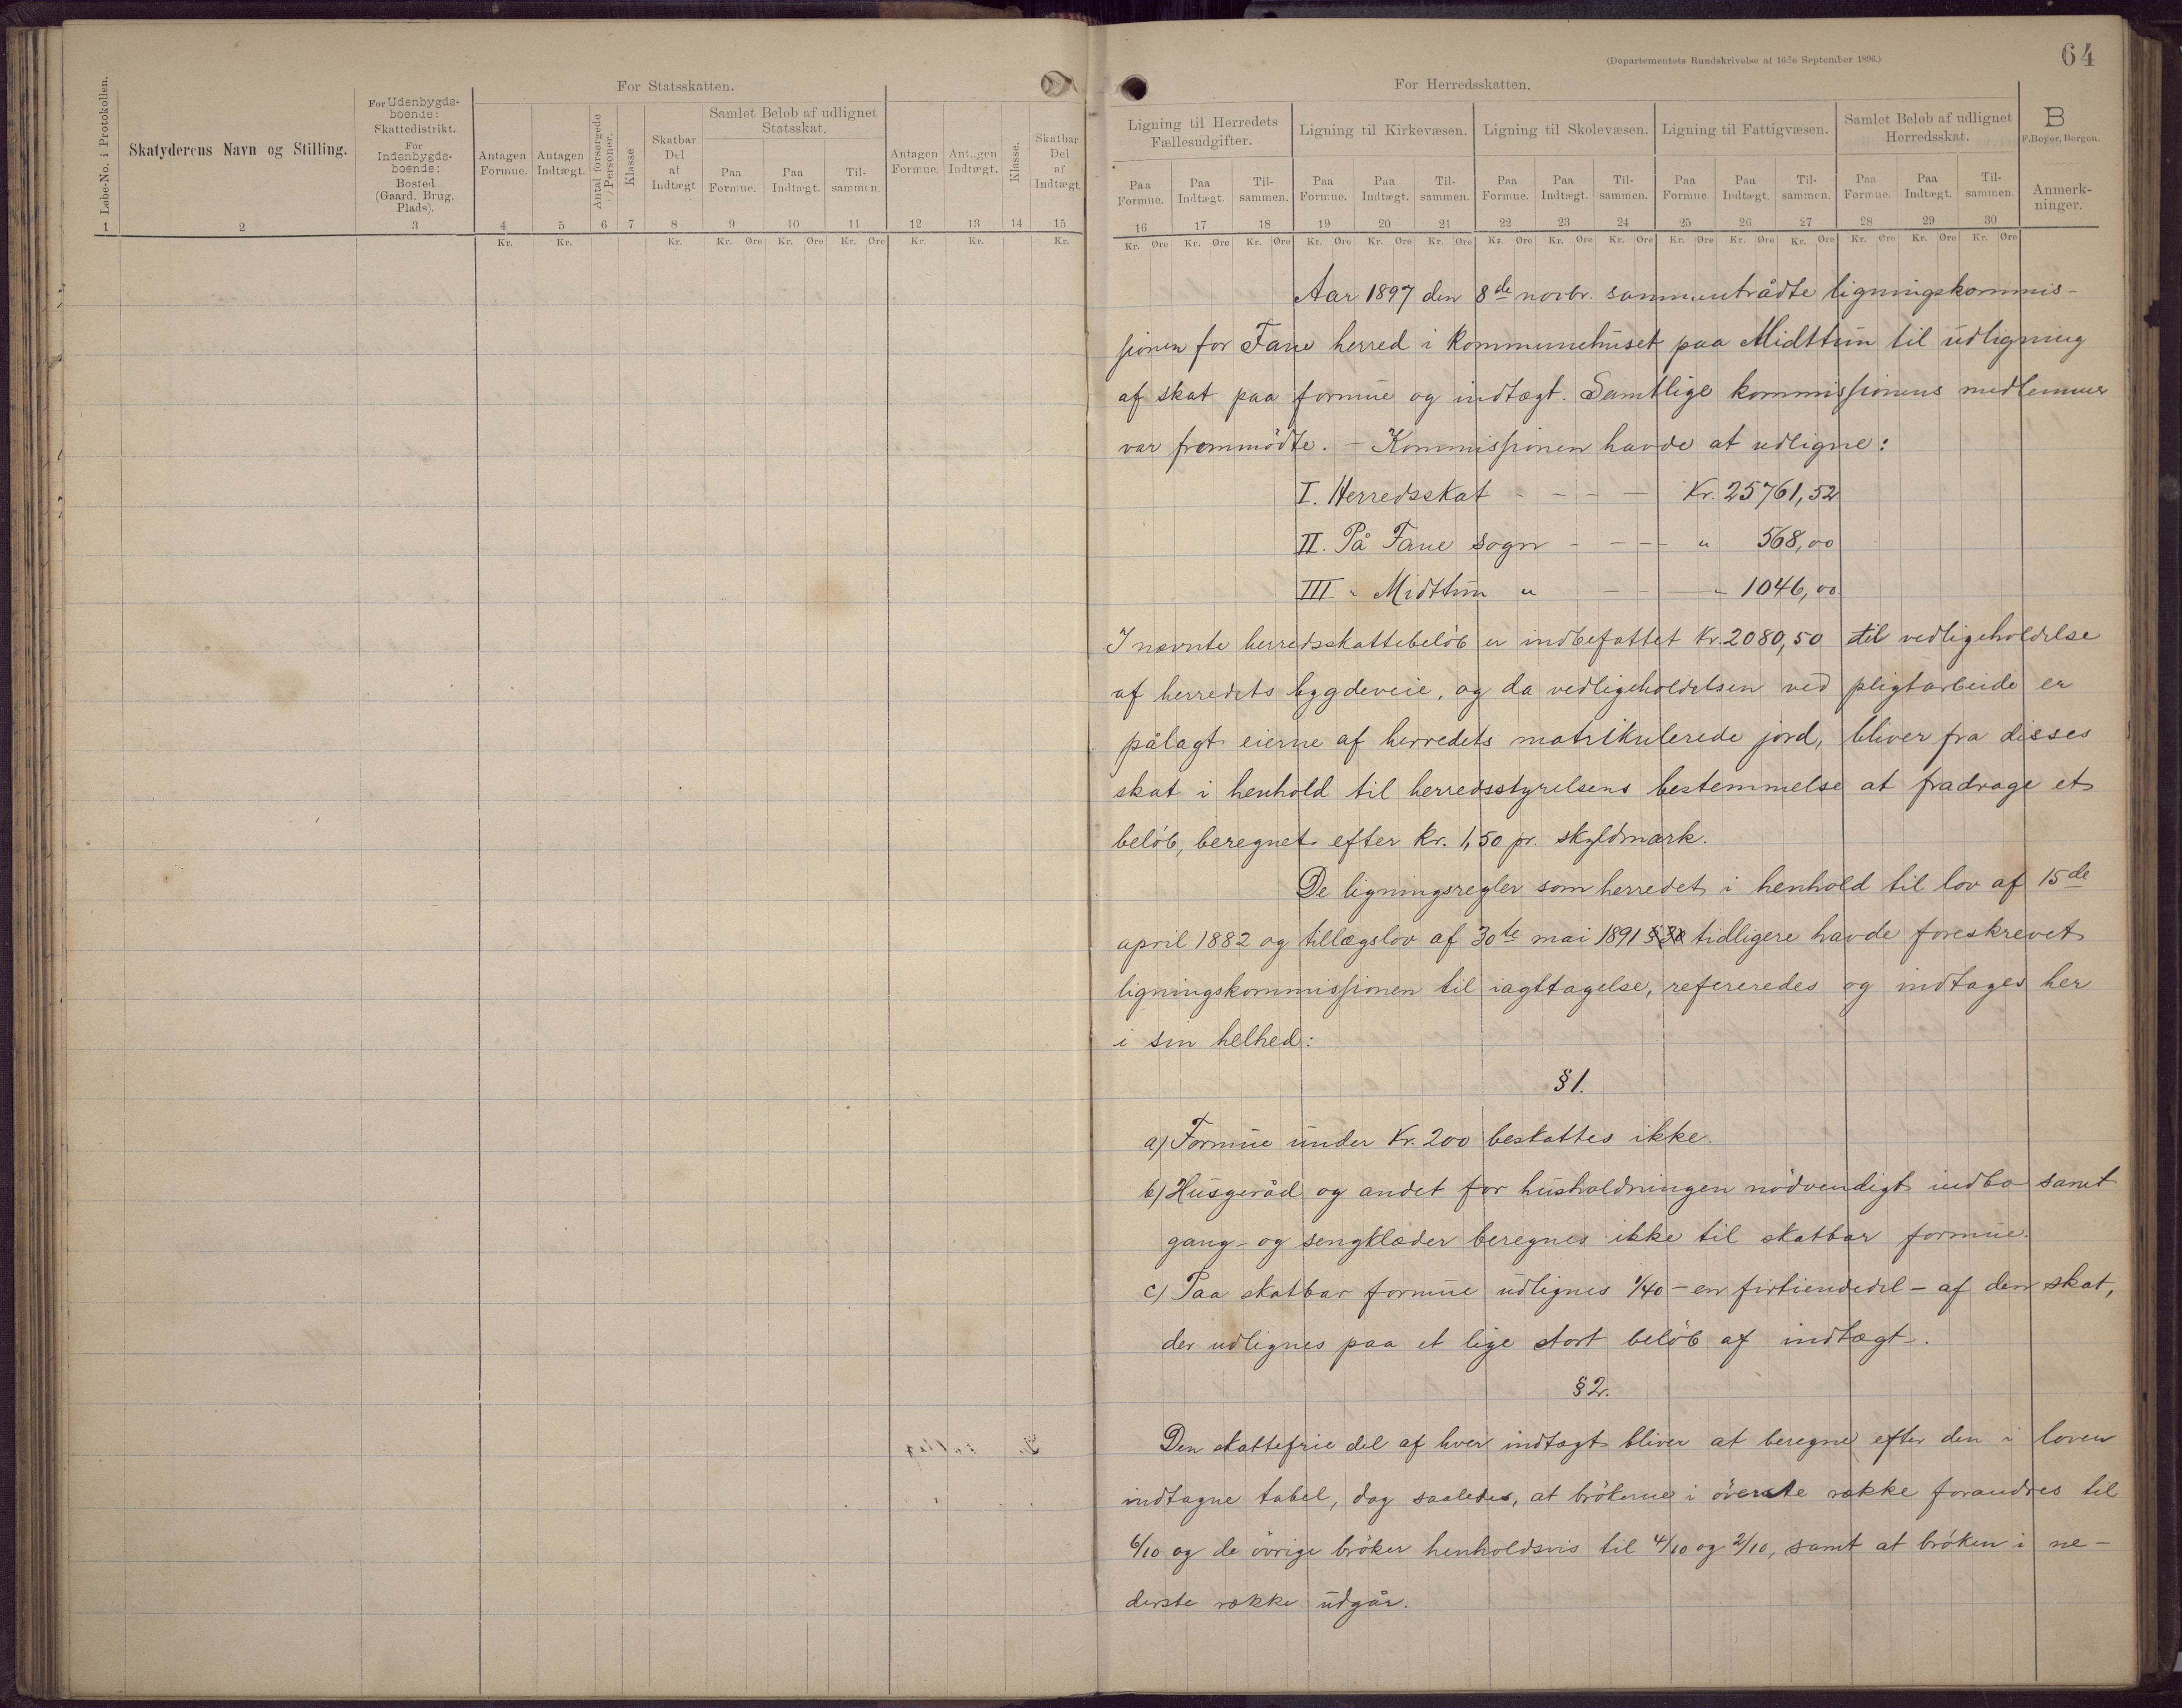 64
(Departementets Rundskrivelse af 16de September 1896.)
For Statsskatten.
For Herredsskatten.
Løbe-No. i Protokollen.
Skatyderens Navn og Stilling.
For Udenbygds-
boende:
Skattedistrikt.
For
Indenbygds-
boende:
Bosted
(Gaard, Brug,
Plads).
Antagen Formue.
Antagen Indtægt.
Antal forsørgede Personer.
Klasse
Skatbar Del af Indtægt
Samlet Beløb af udlignet Statsskat.
Paa Formue.
Paa Indtægt.
Til-sammen.
Antagen Formue.
Antagen Indtægt.
Klasse.
Skatbar Del af Indtægt.
1 2 3 4 5 6 7 8 9 10 11 12 13 14 15
Kr. Kr. Kr. Kr. Øre Kr. Øre Kr. Øre Kr. Kr. Kr.
Ligning til Herredets Fællesudgifter.
Ligning til Kirkevæsen.
Ligning til Skolevæsen.
Ligning til Fattigvæsen.
Samlet Beløb af udlignet Herredsskat.
B
F. Beyer, Bergen.
Paa Formue. Paa Indtægt. Til-sammen. Paa Formue. Paa Indtægt. Til-sammen. Paa Formue. Paa Indtægt. Til-sammen. Paa Formue. Paa Indtægt. Til-sammen. Paa Formue. Paa Indtægt. Til-sammen.
Anmerk-
ninger.
16 17 18 19 20 21 22 23 24 25 26 27 28 29 30
Kr. Øre Kr. Øre Kr. Øre Kr. Øre Kr. Øre Kr. Øre Kr. Øre Kr. Øre Kr. Øre Kr. Øre Kr. Øre Kr. Øre Kr. Øre Kr. Øre Kr. Øre
Aar 1897 den 8de novbr. sammentrådte ligningskommis-
sionen for Fane herred i kommunehuset paa Midttun til udligning
af skat paa formue og indtægt. Samtlige kommissionens medlemmer
var fremmödte. – Kommissionen havde at udligne:
I. Herredsskat - - - - Kr. 25761,52
II. På Fane sogn - - - " 568,00
III " Midttun " - - - " 1046,00
I nævnte herredsskattebelöb er indbefattet Kr. 2080,50 til vedligeholdelse
af herredets bygdeveie, og da vedligeholdelsen ved pligtarbeide er
pålagt eierne af herredets matrikulerede jord, bliver fra disses
skat i henhold til herredsstyrelsens bestemmelse at fradrage et
belöb, beregnet efter kr. 1,50 pr. skyldmark.
De ligningsregler som herredet i henhold til lov af 15de
april 1882 og tillægslov af 30te mai 1891 tidligere havde foreskrevet
ligningskommissionen til iagttagelse, refereredes og indtages her
i sin helhed:
§ 1.
a) Formue under Kr. 200 beskattes ikke.
b) Husgeråd og andet for husholdningen nödvendigt indbo samt
gang- og sengklæder beregnes ikke til skatbar formue.
c) Paa skatbar formue udlignes 1/40 – en firtiendedel – af den skat,
der udlignes paa et lige stort belöb af indtægt.
§ 2.
Den skattefrie del af hver indtægt bliver at beregne efter den i loven
indtagne tabel, dog saaledes, at brökerne i överste række forandres til
6/10 og de övrige bröker henholdsvis til 4/10 og 2/10, samt at bröken i ne-
derste række udgår.